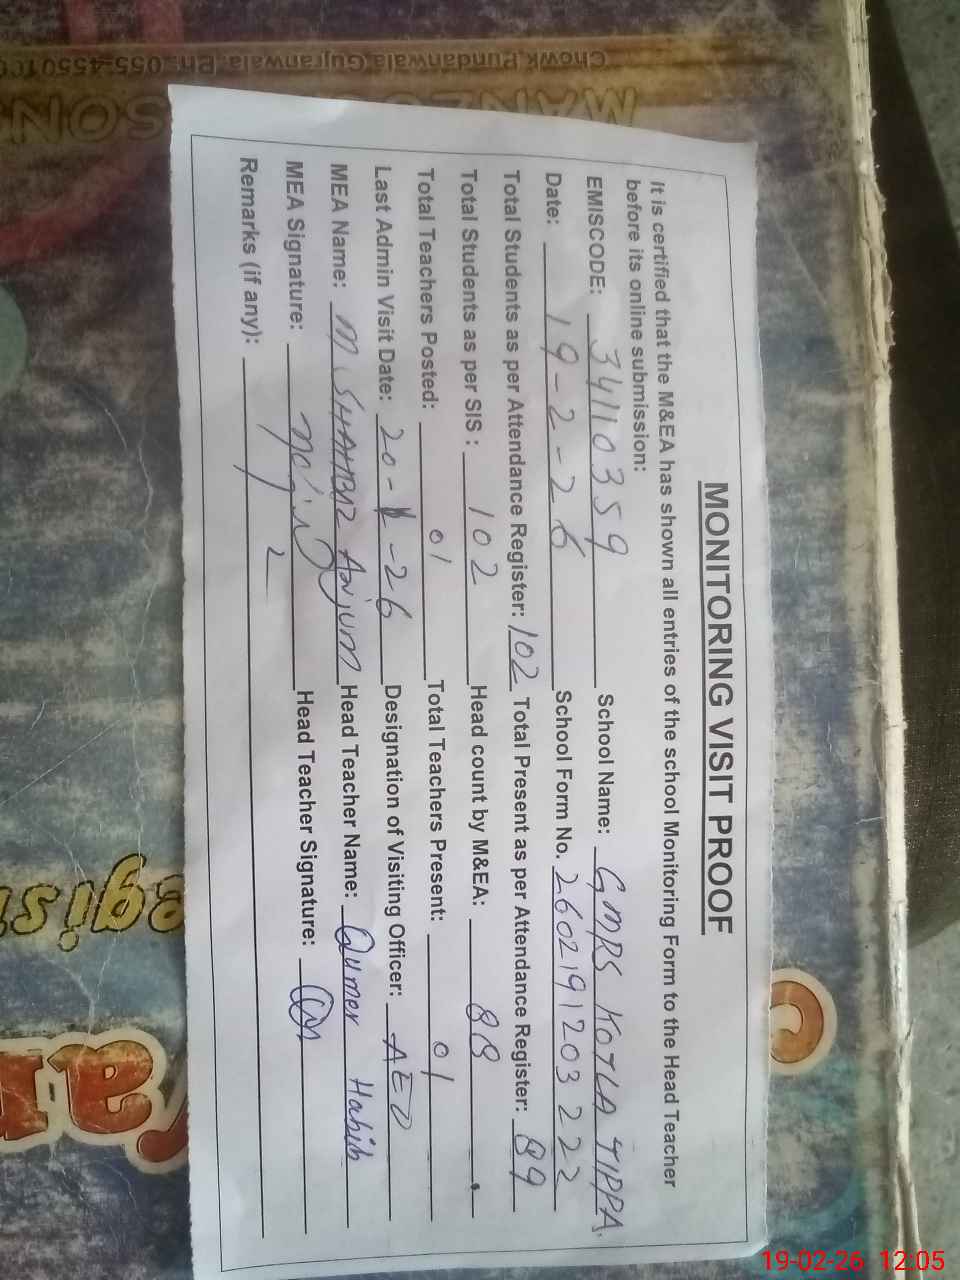 Chowk Pundanwala Gujranwala, Ph: 055-455010
SONS
MONITORING VISIT PROOF
It is certified that the M&EA has shown all entries of the school Monitoring Form to the Head Teacher
before its online submission:
EMISCODE: 34110359 School Name: GMPS KOTLA TIPPA.
Date: 19-2-26 School Form No. 2602191203222
Total Students as per Attendance Register: 102 Total Present as per Attendance Register: 89
Total Students as per SIS : 102 Head count by M&EA: 88
Total Teachers Posted: 01 Total Teachers Present: 01
Last Admin Visit Date: 20-1-26 Designation of Visiting Officer: AEO
MEA Name: M. SHAHBAZ Anjum Head Teacher Name: Qumer Habib
MEA Signature: Head Teacher Signature:
Remarks (if any):
19-02-26 12:05